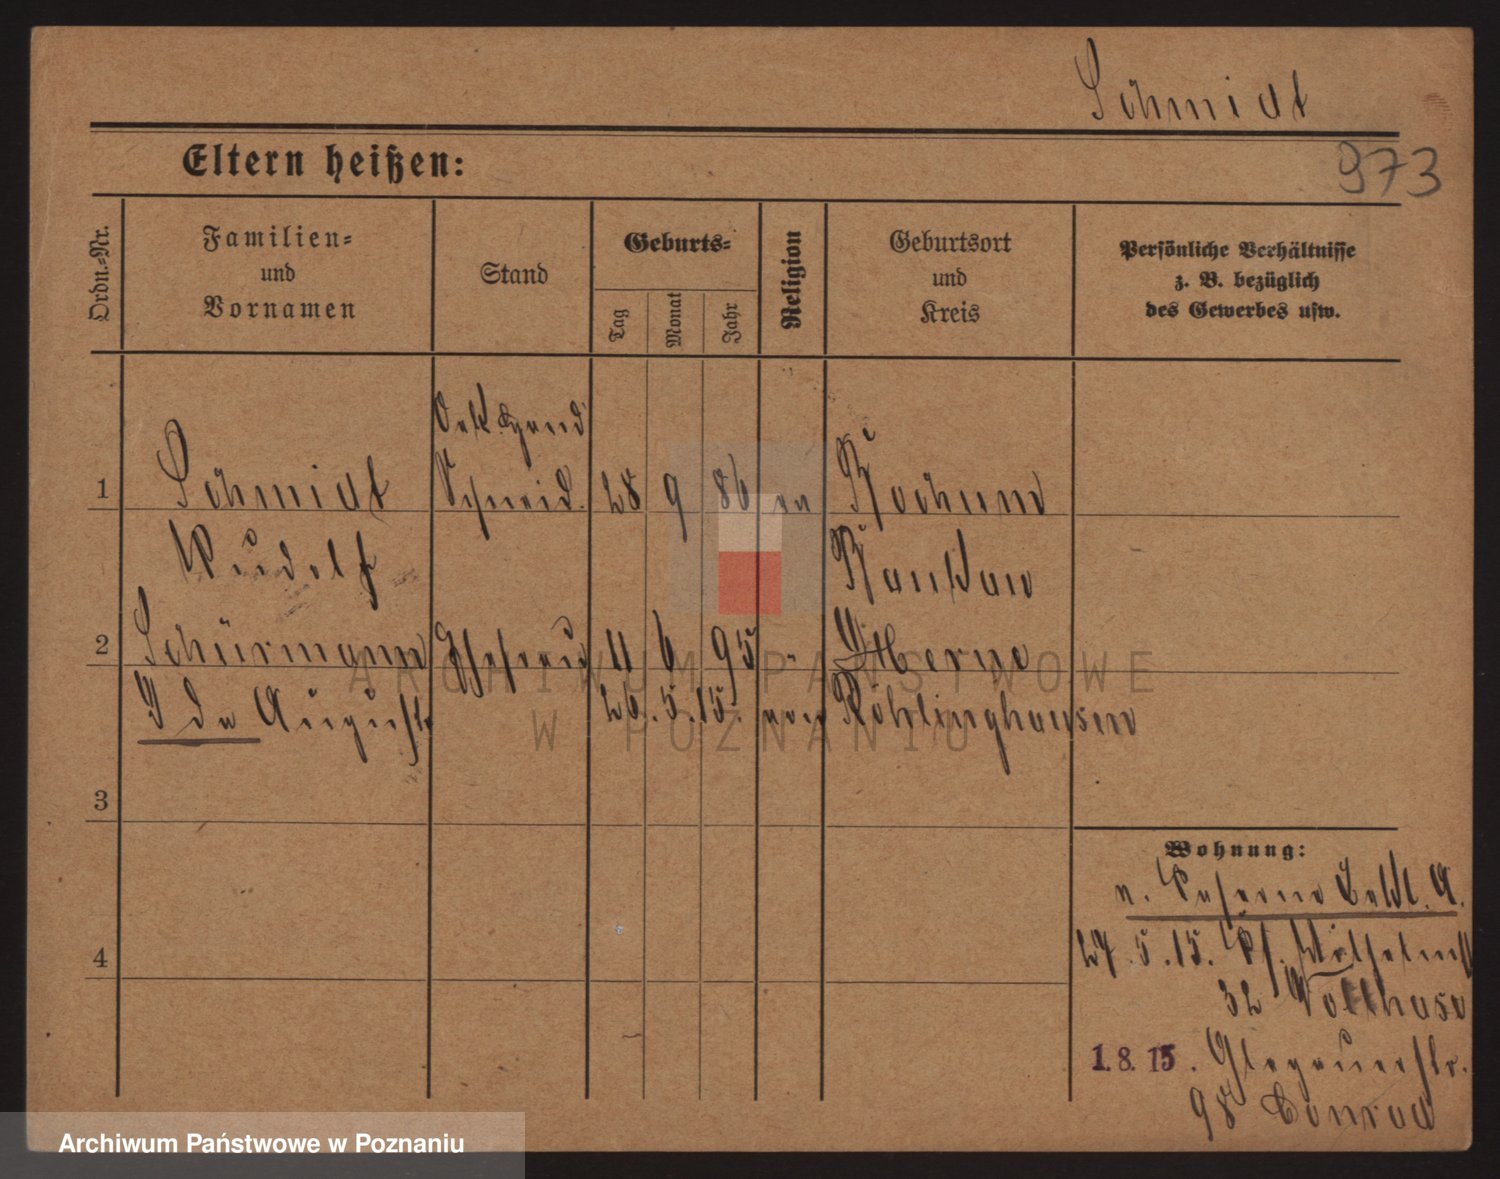 Schmidt
Eltern heißen:
973
Ordn.-Nr.
Familien-
und
Vornamen
Stand
Geburts-
Tag
Monat
Jahr
Religion
Geburtsort
und
Kreis
Persönliche Verhältnisse
z. B. bezüglich
des Gewerbes usw.
1
Schmidt
Schneid.
28 9 86 ev
Bochum
Rudolf
2
Schürmann
Ehefrau
11 6 95 "
Herne
Ida Auguste
26. 5. 15. von Röhlinghausen
3
4
Wohnung:
n. Kaserne
27. 5. 15.
32
1. 8. 15. Glogauerstr.
98 Conrad
ARCHIWUM PAŃSTWOWE
W POZNANIU
Archiwum Państwowe w Poznaniu